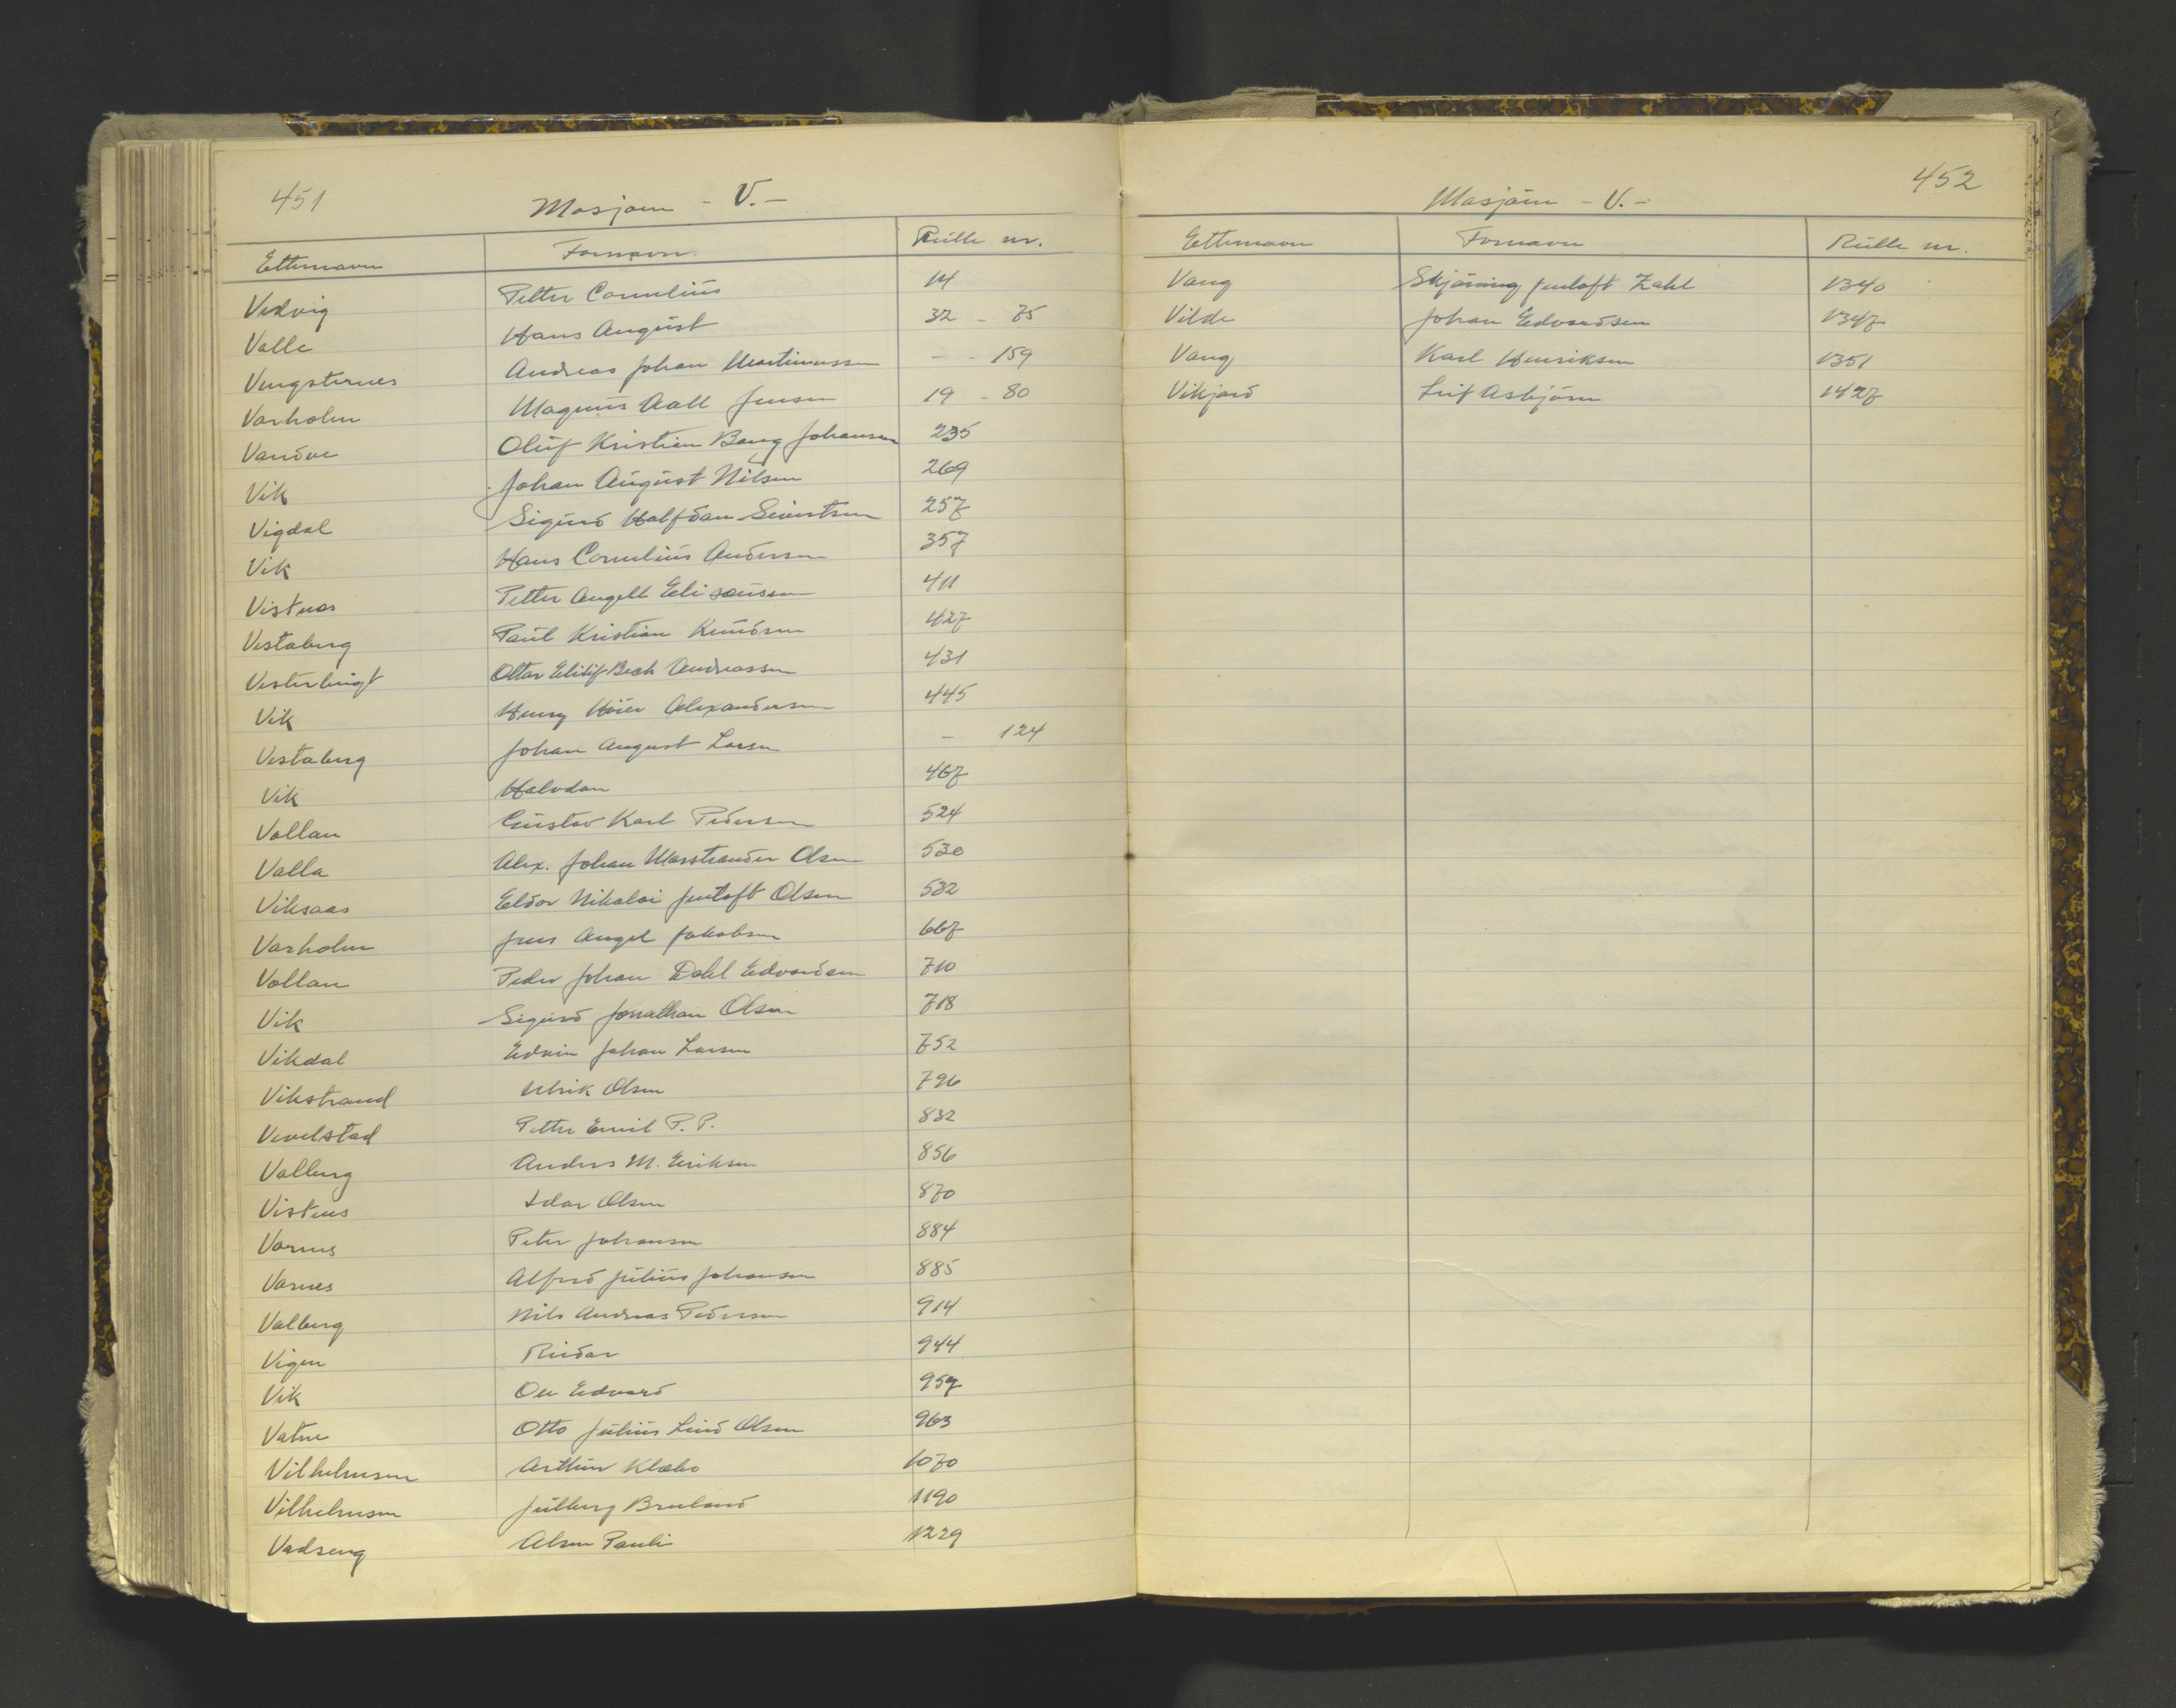 451
Mosjøen - V. -
Etternavn Fornavn Rulle nr.
Vedvig Petter Cornelius 14
Valle Hans August 32 - 75
Vengsternes Andreas Johan Martinussen - - 159
Varholm Magnus Aall Jensen 19 - 80
Vandve Oluf Kristian Bang Johansen 235
Vik Johan August Nilsen 269
Vigdal Sigurd Halfdan Sivertsen 257
Vik Hans Cornelius Andersen 357
Vistnes Petter Angell Eliseussen 411
Vestaberg Paul Kristian Knudsen 427
Vesterbugt Ottar Elilif Bech Andreassen 431
Vik Henry Høier Alexandersen 445
Vestaberg Johan August Larsen - 124
Vik Halvdan 467
Vollan Gustav Karl Pedersen 524
Valla Alex. Johan Masstrander Olsen 530
Viksaas Eldor Nikolai Jentoft Olsen 532
Varholm Jens Angel Jakobsen 667
Vollan Peder Johan Dahl Edvardsen 710
Vik Sigurd Jonathan Olsen 718
Vikdal Edvin Johan Larsen 752
Vikstrand Ulrik Olsen 796
Vevelstad Petter Emil P. P. 832
Valberg Anders M. Eriksen 856
Vistnes Idar Olsen 870
Varnes Peter Johansen 884
Varnes Alfred Julius Johansen 885
Valberg Nils Andreas Pedersen 914
Vigen Reidar 944
Vik Ole Edvard 957
Vatne Otto Julius Lind Olsen 963
Vilhelmsen Arthur Klæbo 1070
Vilhelmsen Julberg Bruland 1190
Vadseng Alsen Pauli 1229
452
Mosjøen - V. -
Etternavn Fornavn Rulle nr.
Vang Skjæring Jentoft Zahl 1340
Vilde Johan Edvardsen 1347
Vang Karl Henriksen 1351
Vikjord Leif Asbjørn 1427